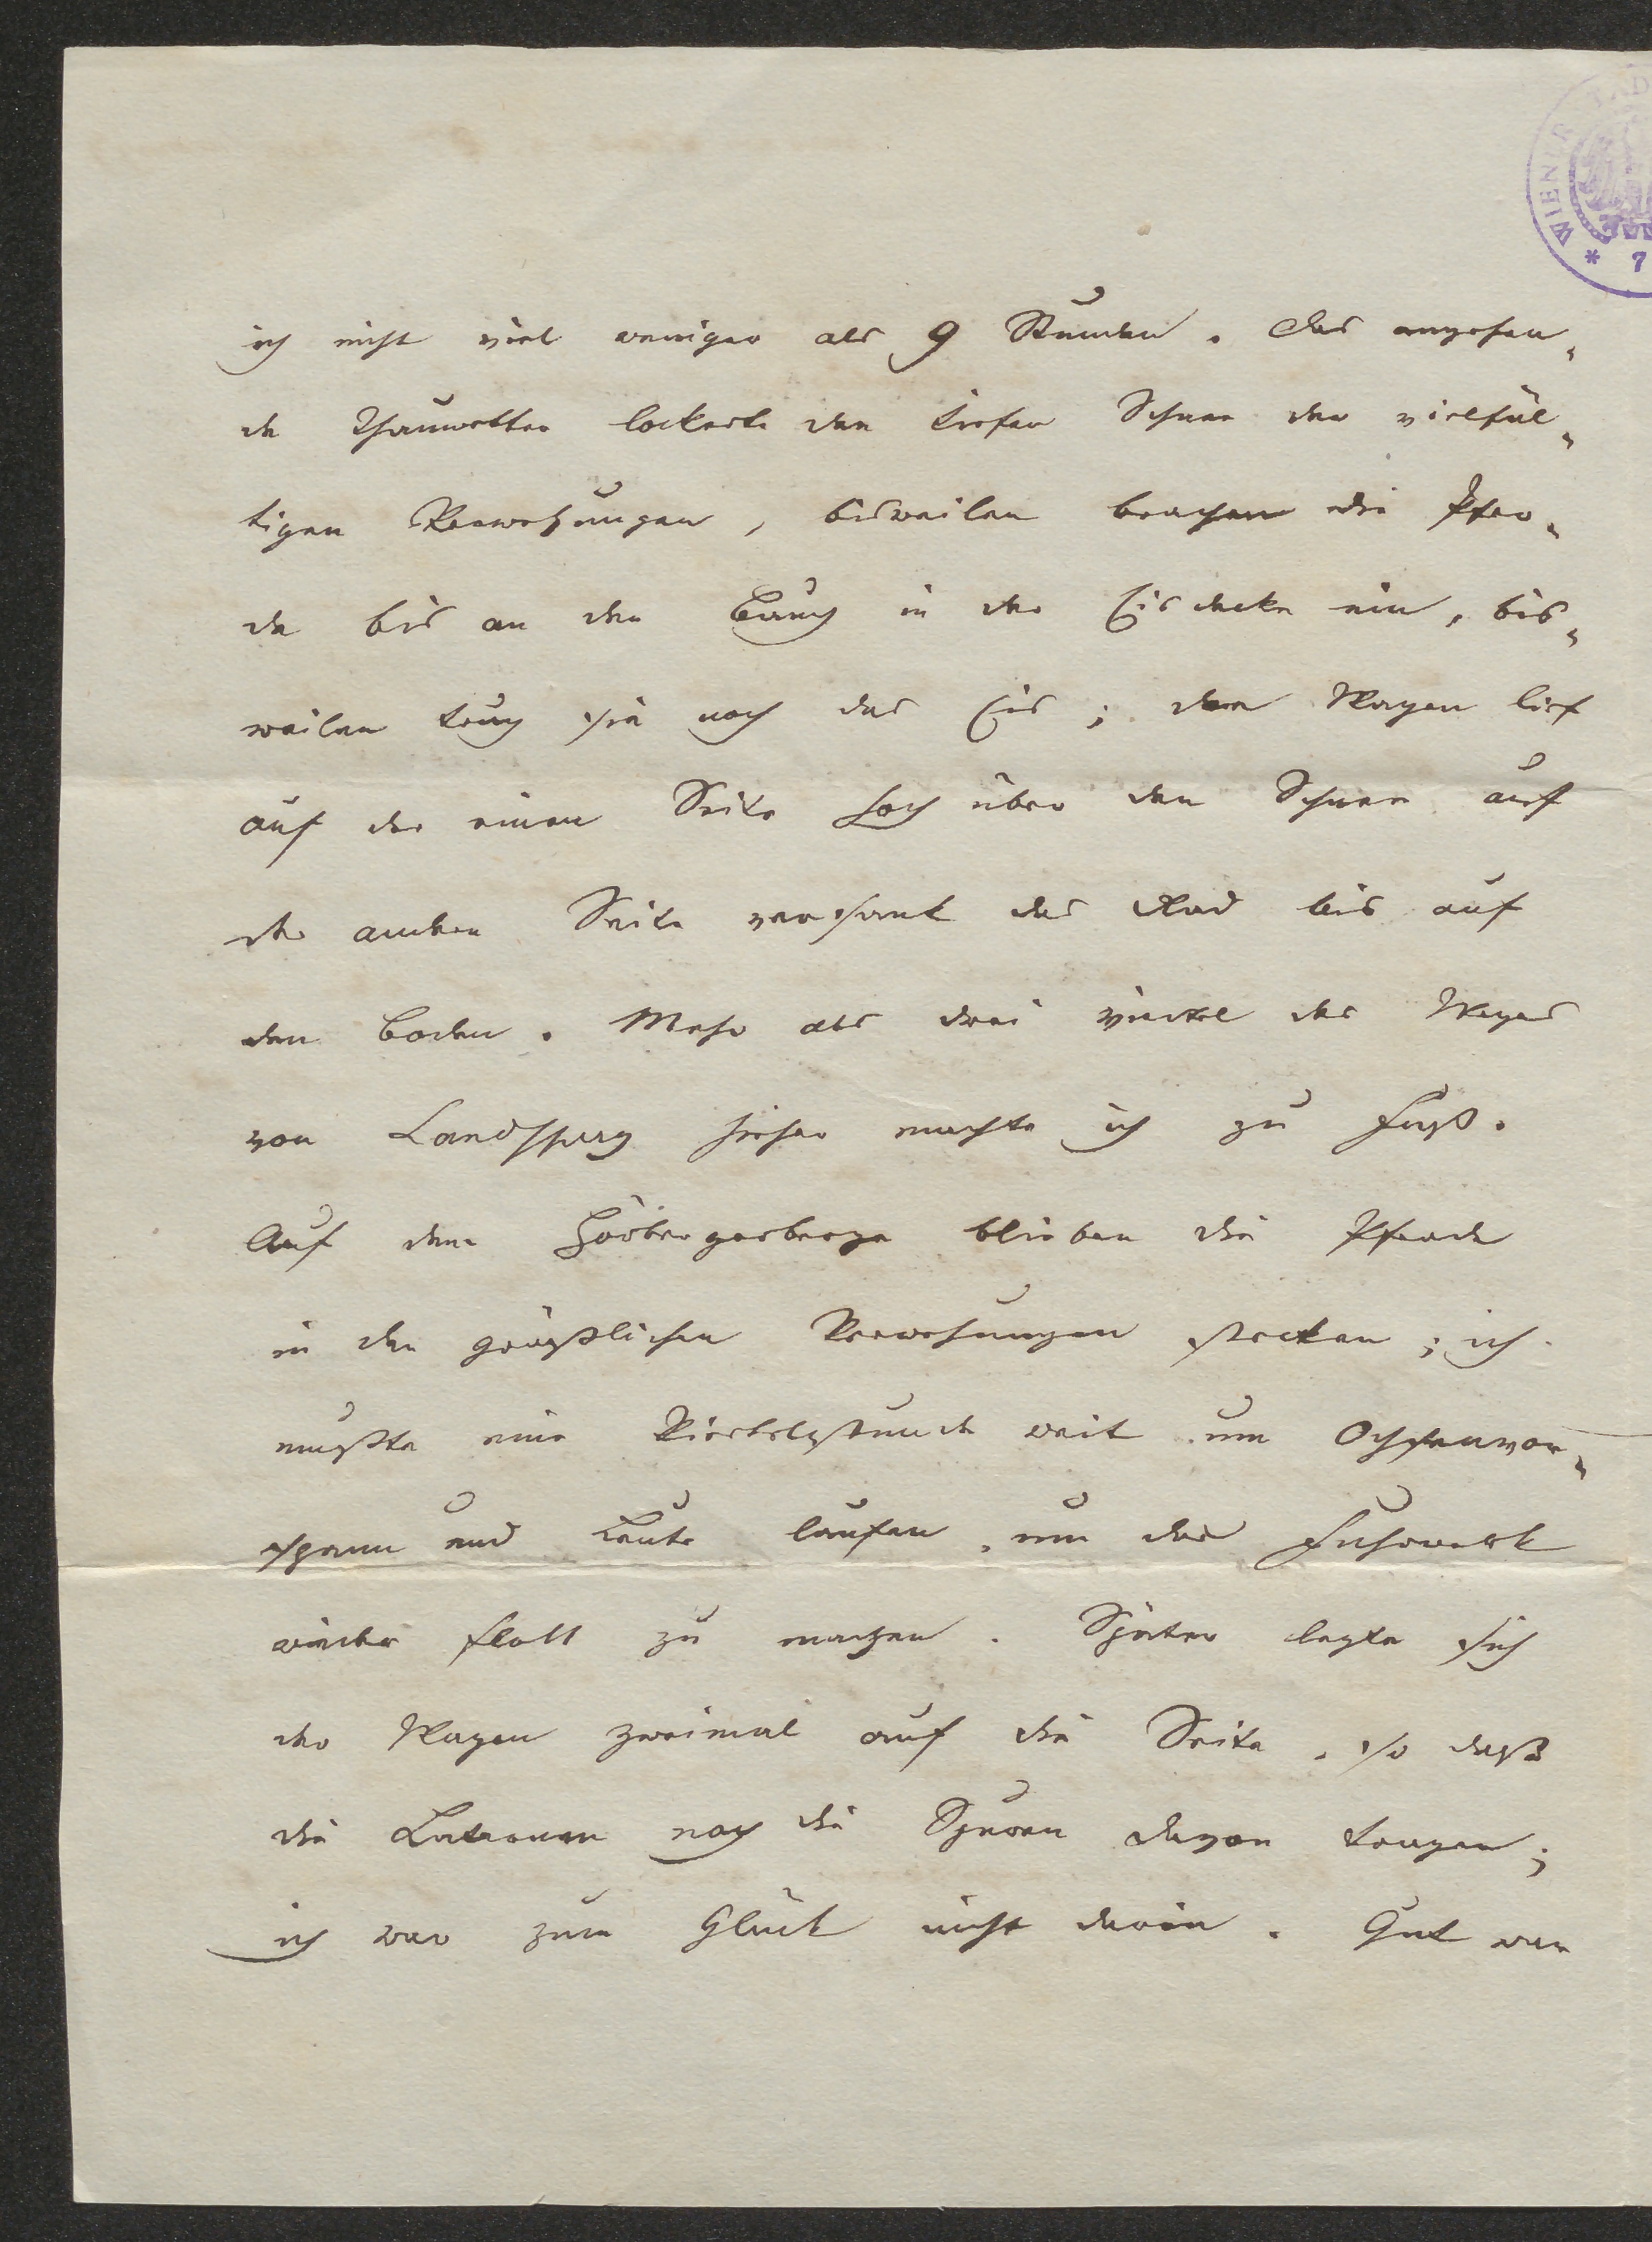 WIENER STAD
* 7
ich nicht viel weniger als 9 Stunden. Das angehen-
de Thauwetter lockerte den tiefen Schnee der vielfäl-
tigen Verwehungen, bisweilen brachen die Pfer-
de bis an den Bauch in der Eisdecke ein, bis-
weilen trug sie noch das Eis; der Wagen lief
auf der einen Seite hoch über den Schnee auf
der andern Seite versank das Rad bis auf
den Boden. Mehr als drei viertel des Weges
von Landsperg hieher machte ich zu Fuß.
Auf dem Hörbergerberge blieben die Pferde
in den gräßlichen Verwehungen stecken; ich
mußte eine Viertelstunde weit um Ochsenvor-
spann und Leute laufen, um das Fuhrwerk
wieder flott zu machen. Später legte sich
der Wagen zweimal auf die Seite, so daß
die Laternen noch die Spuren davon tragen;
ich war zum Glück nicht darin. Gut war